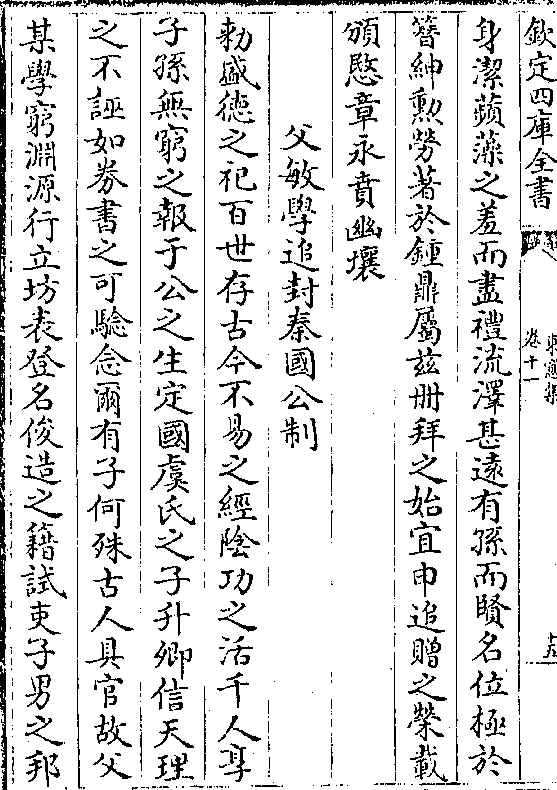 欽定四庫全書
卷十一
十五
身潔蘋藻之羞而盡禮流澤甚遠有孫而賢名位極於
簪紳勲勞著於鍾鼎屬兹册拜之始宜申追贈之榮載
頒愍章永賁幽壤
父敏學追封秦國公制
勅盛德之祀百世存古今不易之經陰功之活千人享
子孫無窮之報于公之生定國虞氏之子升卿信天理
之不誣如券書之可驗念爾有子何殊古人具官故父
某學窮淵源行立坊表登名俊造之籍試吏子男之邦